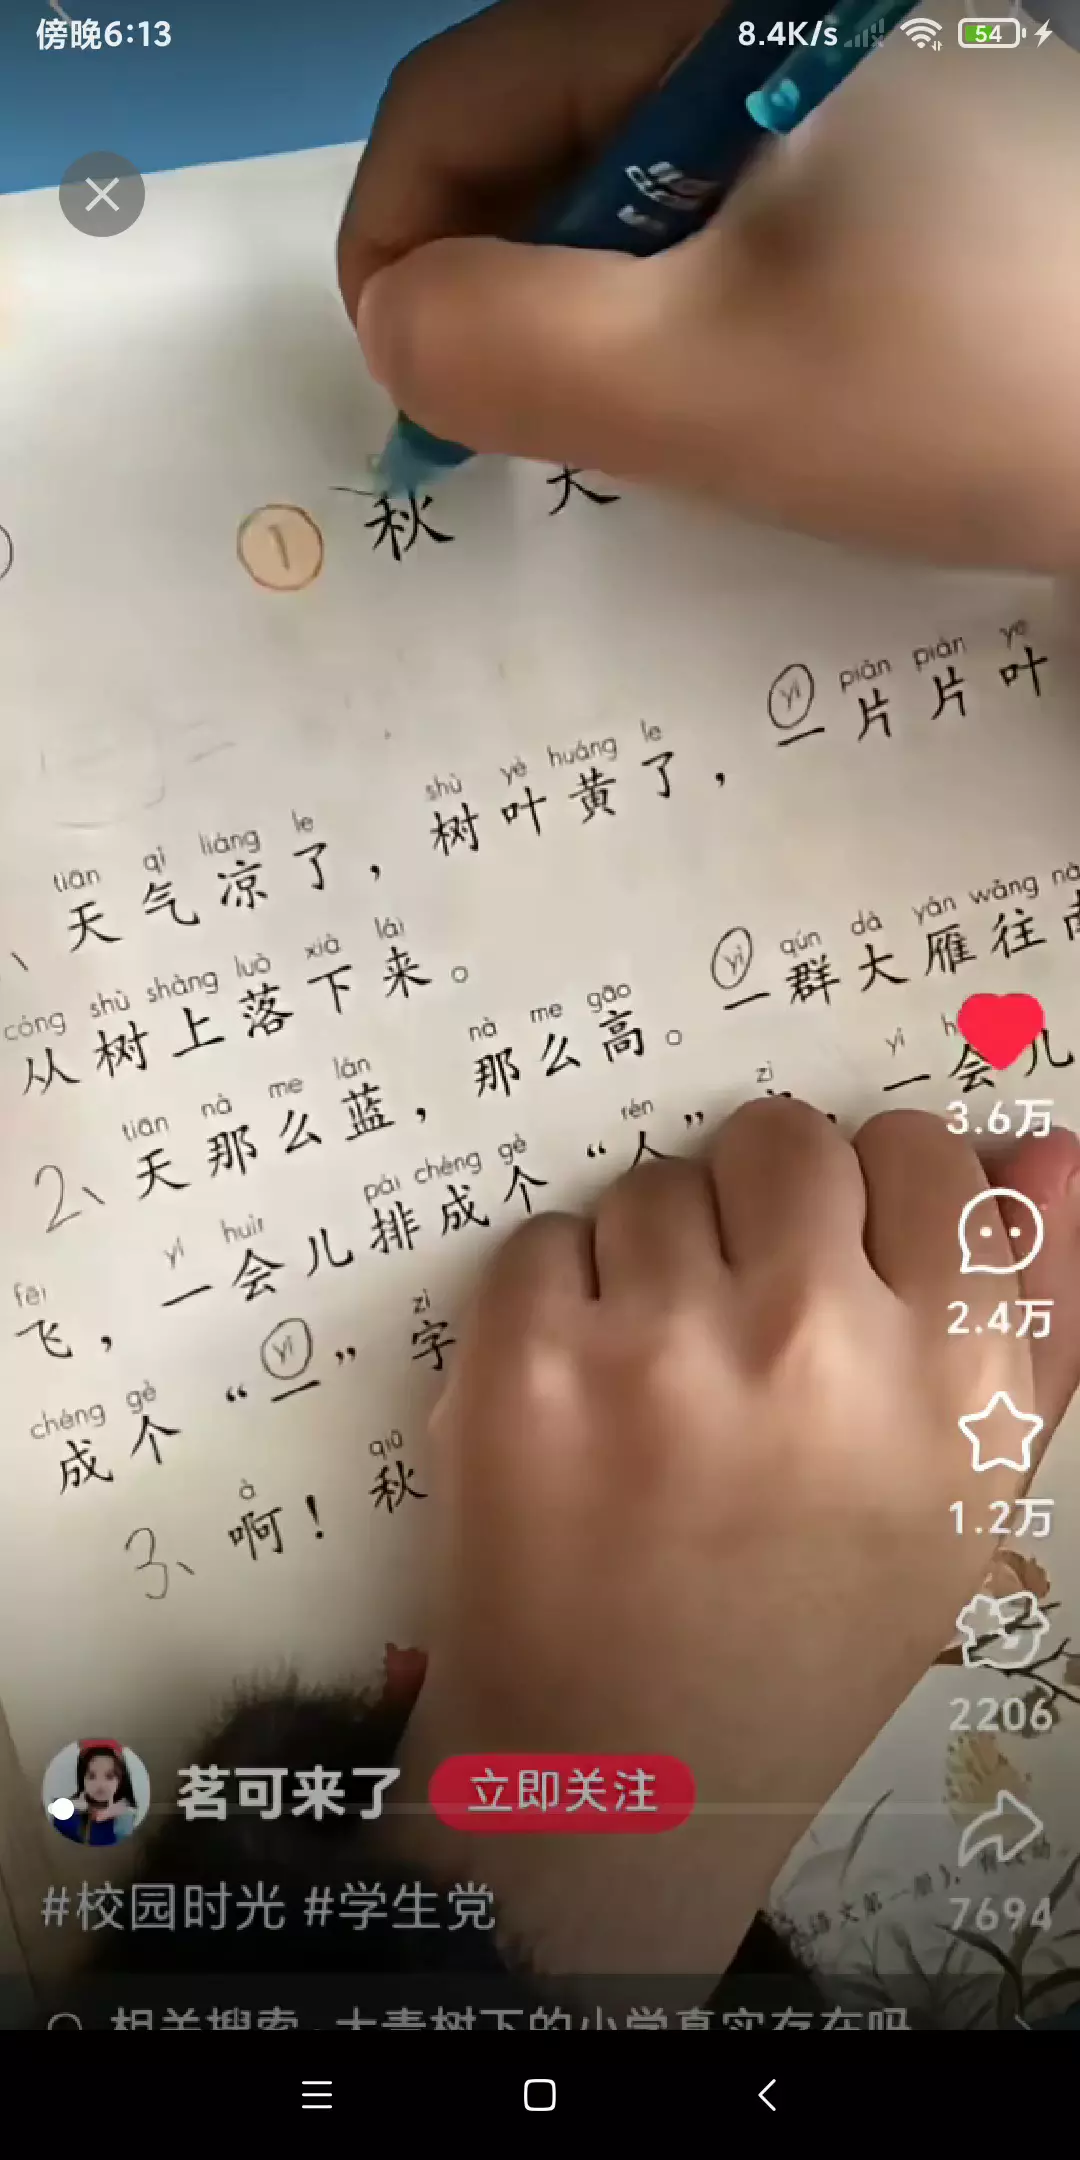 傍晚6:13 8.4K/s 54
1 秋 天
yì piàn piàn yè
一片片叶
shù yè huáng le
树叶黄了，
tiān qì liáng le
、天气凉了，
cóng shù shàng luò xià lái
从树上落下来。
yì qún dà yàn wǎng
一群大雁往
nà me gāo
那么高。
tiān nà me lán
2、天那么蓝，
yí
一会儿
pái chéng gè rén zì
排成个“人”
yí huìr
一会儿
fēi
飞，
chéng gè yī zì
成个“一”字
à qiū
3、啊！秋
3.6万
2.4万
1.2万
2206
7694
茗可来了 立即关注
#校园时光 #学生党
相关搜索·大青树下的小学真实存在吗